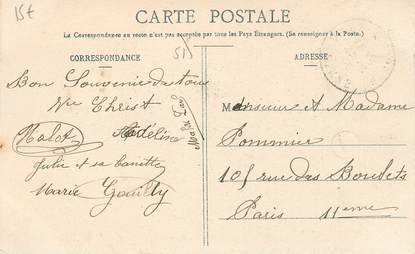 15f
CARTE POSTALE
La Correspondance en recto n'est pas acceptée par tous les Pays Etrangers. (Se renseigner à la Poste)
CORRESPONDANCE
51
ADRESSE
Bon Souvenir de tous
Vve Christ
Malot Adéline
Julie et sa
Marie
Monsieur et Madame
Pommier
105 rue des Boulets
Paris 11eme